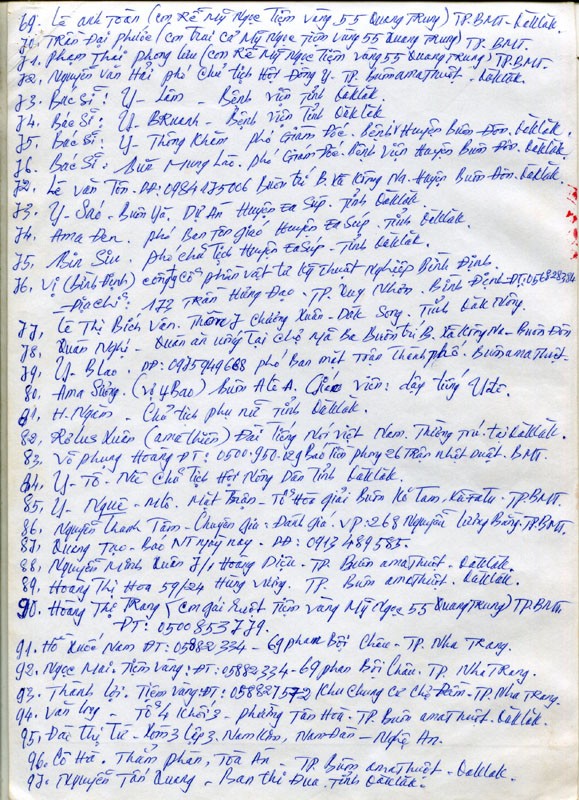 69. Lê anh Toàn (con Rể Mỹ Ngọc Tiệm vàng 55 Quang Trung) TP.BMT. Đăklăk.
70. Trần Đại phước (con trai cả Mỹ Ngọc Tiệm vàng 55 Quang Trung) TP. BMT.
71. Phạm Thái phong lưu (con Rể Mỹ Ngọc Tiệm vàng 55 Quang Trung) TP.BMT.
72. Nguyễn Văn Hải phó Chủ tịch Hội Đông Y. TP. Buôn ama Thuột. Đăklăk.
73. Bác Sĩ: Y- Lâm - Bệnh viện Tỉnh Đăklăk
74. Bác Sĩ: Y- BRuanh - Bệnh viện Tỉnh Đăklăk
75. Bác Sĩ: Y- Thông Khăm phó Giám Đốc. Bệnh V Huyện Buôn Đôn. Đăklăk.
76. Bác Sĩ: Bun Mung Lào. phó Giám Đốc. Bệnh Viện Huyện Buôn Đôn. Đăklăk.
72. Lê văn Tôn. DĐ: 0984175006 Buôn trí B. Xã Krông Na. Huyện Buôn Đôn. Đăklăk
73. Y- Sao - Buôn Ya. Dự Án Huyện Ea Súp. Tỉnh Đăklăk.
74. Ama Đen. phó Ban tôn giáo Huyện Ea Súp. Tỉnh Đăklăk.
75. Bun Siu phó chủ tịch Huyện Ea Súp - Tỉnh Đăklăk.
76. Vị (Bình Định) công ty cổ phần vật tư kỹ thuật Nghiệp Bình Định
- Địa chỉ: 172 Trần Hưng Đạo - TP. Quy Nhơn. Bình Định - ĐT:
77. Lê Thị Bích Vân. Thôn 7 Trường Xuân - Đăk Song. Tỉnh Đăk Nông.
78. Quán Nghi - Quán ăn uống tại Chợ Ngã Ba Buôn trí B. Xã Krông Na - Buôn Đôn
79. Y- Blao. DĐ: 0975949668 phó Ban mặt Trận Thành phố. Buôn ama Thuột.
80. Ama Sương. (vị Y Bao) Buôn Alê A. Giáo viên: dạy tiếng
81. H. Ngăm - Chủ tịch phụ nữ Tỉnh Đăklăk.
82. Xuân (ama Thiên) Đài Tiếng Nói Việt Nam. Thường trú tại Đăklăk.
83. Võ phụng Hoàng ĐT: 0500.950.129 Bảo Tồn phòng 26 Trần nhật Duật. BMT.
84. Y- Tô - Niê Chủ tịch Hội Nông Dân Tỉnh Đăklăk.
85. Y- Nguê - Mlô. Mặt Trận - Tổ Hòa giải Buôn Kô Tam. Xã EaTu. TP.BMT.
86. Nguyễn Thanh Tâm - Chuyên gia: Đánh giá. VP: 268 Nguyễn Lương Bằng TP.BMT.
87. Quang Tạo - Báo NT ngày nay. DĐ: 0913 489585.
88. Nguyễn Minh Xuân 71 Hoàng Diệu. TP. Buôn ama Thuột. Đăklăk.
89. Hoàng Thị Hoa 59/24 Hùng vương. TP. Buôn ama Thuột. Đăklăk.
90. Hoàng Thị Trang (con gái Ruột Tiệm vàng Mỹ Ngọc 55 Quang Trung) TP.BMT
ĐT: 0500853779.
91. Hồ Xuất Nam ĐT: 05882334 - 69 phan Bội Châu - TP. Nha Trang.
92. Ngọc Mai. Tiệm vàng: ĐT: 05882334 - 69 phan Bội Châu. TP. Nha Trang.
93. Thành Lợi. Tiệm vàng: ĐT: 058827572 Khu chung Cư Chợ Đầm - TP. Nha Trang.
94. Văn - Tổ 4 Khối 3 - phường Tân Hòa - TP. Buôn ama Thuột - Đăklăk.
95. Thị Tư - Xóm 3 lập 3. Nam Kim, Nam Đàn - Nghệ An.
96. Cô Hà. Thẩm phán, Tòa Án - TP. Buôn ama Thuột - Đăklăk.
97. Nguyễn Tấn Quang - Ban thi Đua. Tỉnh Đăklăk.